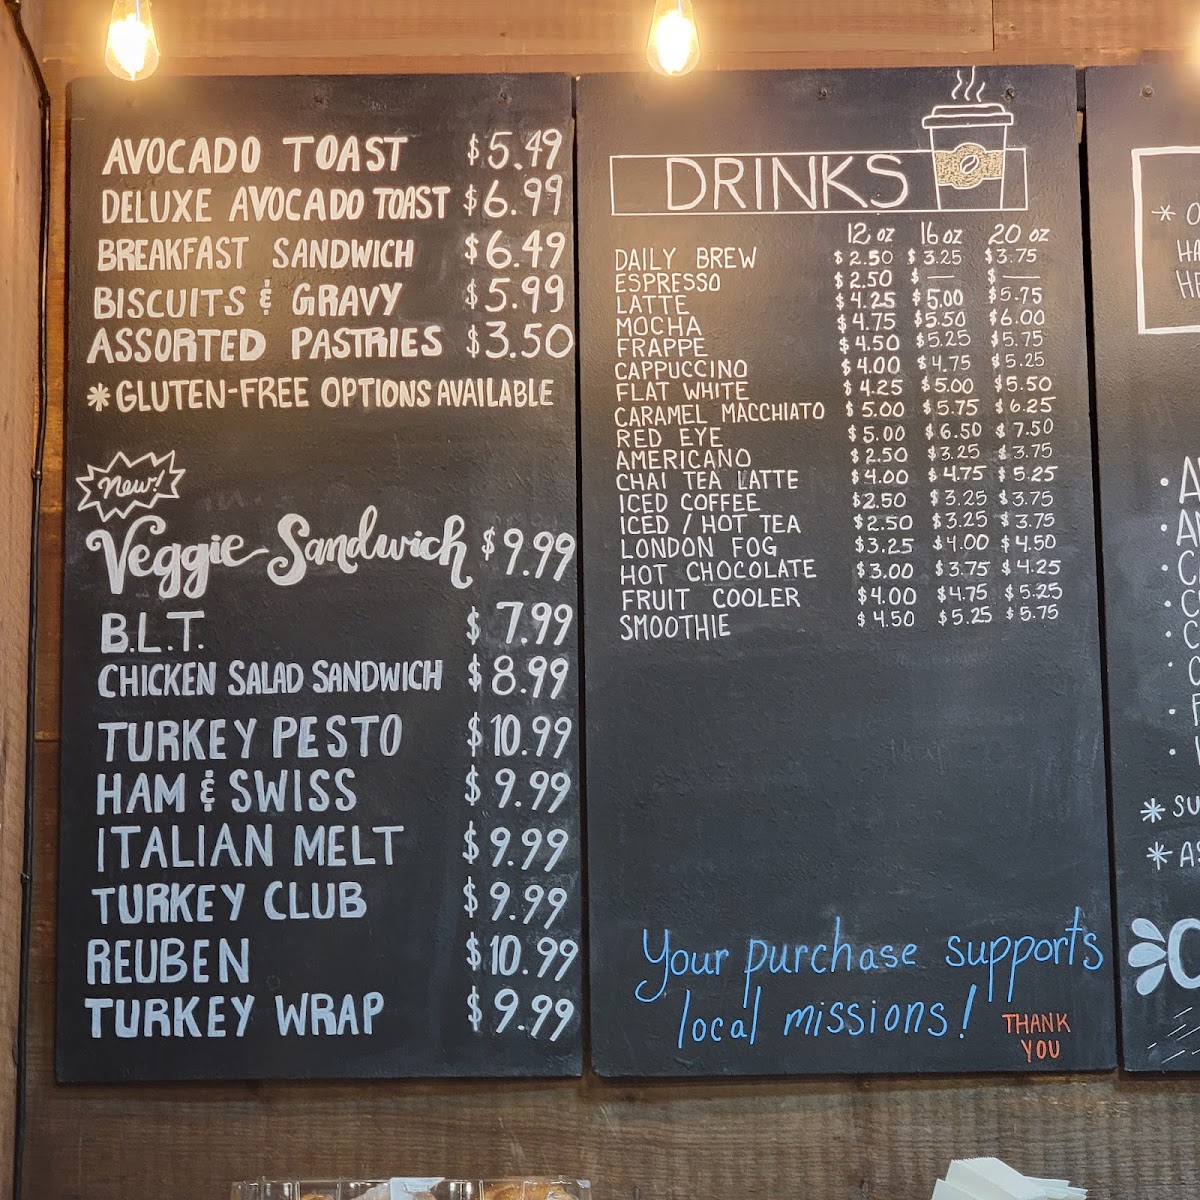 AVOCADO TOAST $5.49
DELUXE AVOCADO TOAST $6.99
BREAKFAST SANDWICH $6.49
BISCUITS & GRAVY $5.99
ASSORTED PASTRIES $3.50
*GLUTEN-FREE OPTIONS AVAILABLE
New!
Veggie Sandwich $9.99
B.L.T. $7.99
CHICKEN SALAD SANDWICH $8.99
TURKEY PESTO $10.99
HAM & SWISS $9.99
ITALIAN MELT $9.99
TURKEY CLUB $9.99
REUBEN $10.99
TURKEY WRAP $9.99
DRINKS
12 oz 16 oz 20 oz
DAILY BREW $2.50 $3.25 $3.75
ESPRESSO $2.50 $— $—
LATTE $4.25 $5.00 $5.75
MOCHA $4.75 $5.50 $6.00
FRAPPE $4.50 $5.25 $5.75
CAPPUCCINO $4.00 $4.75 $5.25
FLAT WHITE $4.25 $5.00 $5.50
CARAMEL MACCHIATO $5.00 $5.75 $6.25
RED EYE $5.00 $6.50 $7.50
AMERICANO $2.50 $3.25 $3.75
CHAI TEA LATTE $4.00 $4.75 $5.25
ICED COFFEE $2.50 $3.25 $3.75
ICED / HOT TEA $2.50 $3.25 $3.75
LONDON FOG $3.25 $4.00 $4.50
HOT CHOCOLATE $3.00 $3.75 $4.25
FRUIT COOLER $4.00 $4.75 $5.25
SMOOTHIE $4.50 $5.25 $5.75
Your purchase supports
local missions!
THANK
YOU